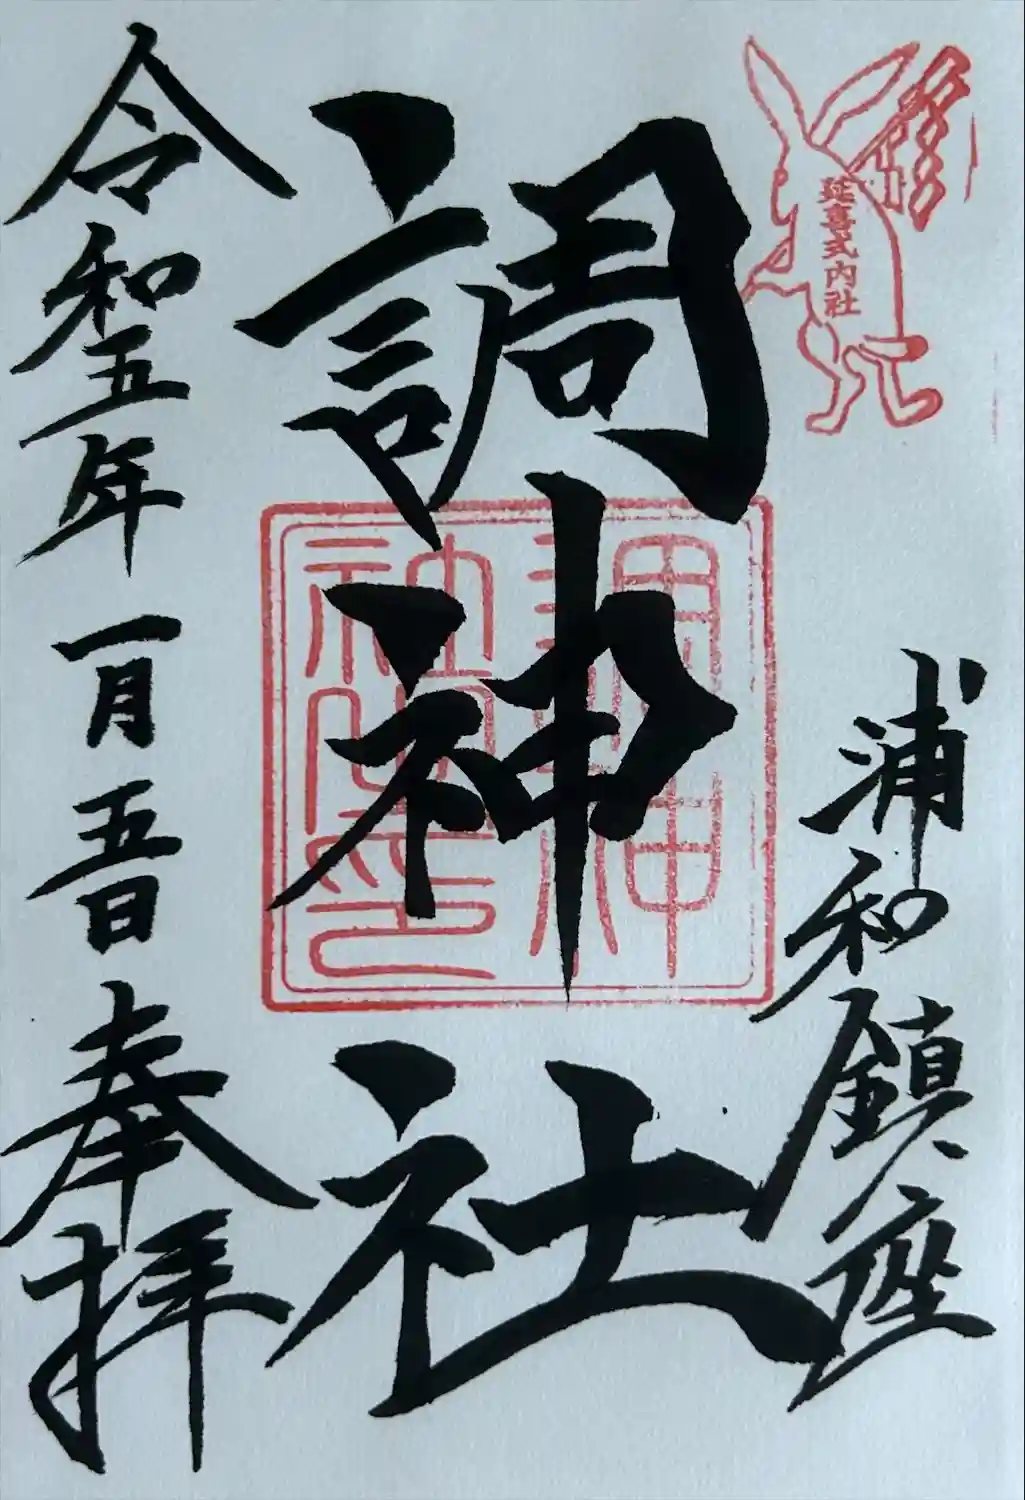 延喜式内社
浦和鎮座
調神社
調神
社之印
令和五年一月五日奉拝